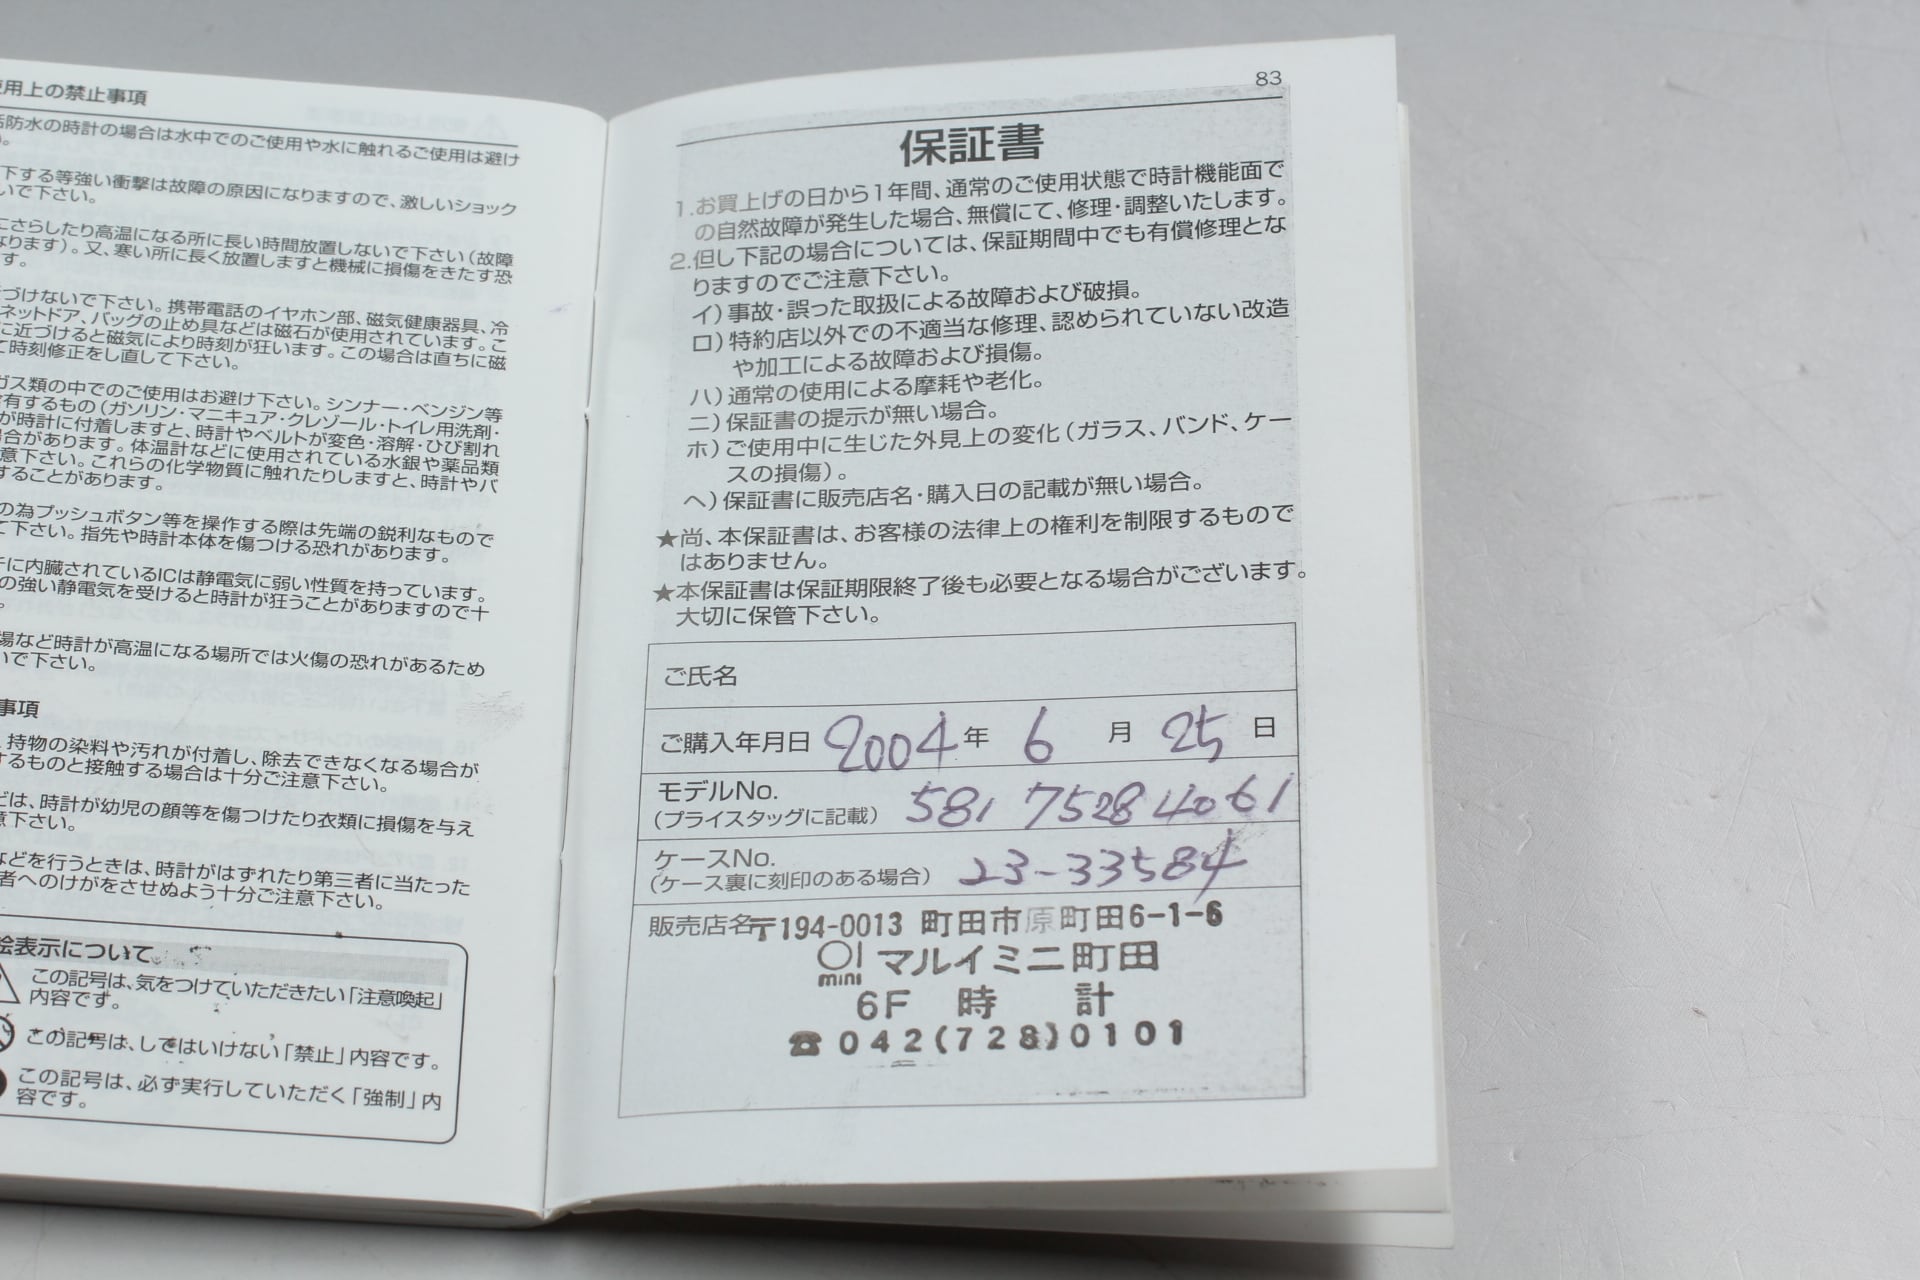 使用上の禁止事項
活防水の時計の場合は水中でのご使用や水に触れるご使用は避け
下する等強い衝撃は故障の原因になりますので、激しいショック
いで下さい。
にさらしたり高温になる所に長い時間放置しないで下さい(故障
なります)。又、寒い所に長く放置しますと機械に損傷をきたす恐
す。
づけないで下さい。携帯電話のイヤホン部、磁気健康器具、冷
ネットドア、バッグの止め具などは磁石が使用されています。こ
に近づけると磁気により時刻が狂います。この場合は直ちに磁
て時刻修正をし直して下さい。
ガス類の中でのご使用はお避け下さい。シンナー・ベンジン等
含有するもの(ガソリン・マニキュア・クレゾール・トイレ用洗剤・
が時計に付着しますと、時計やベルトが変色・溶解・ひび割れ
場合があります。体温計などに使用されている水銀や薬品類
意下さい。これらの化学物質に触れたりしますと、時計やバ
することがあります。
の為プッシュボタン等を操作する際は先端の鋭利なもので
て下さい。指先や時計本体を傷つける恐れがあります。
に内臓されているICは静電気に弱い性質を持っています。
の強い静電気を受けると時計が狂うことがありますので十
場など時計が高温になる場所では火傷の恐れがあるため
いで下さい。
事項
持物の染料や汚れが付着し、除去できなくなる場合が
するものと接触する場合は十分ご注意下さい。
どは、時計が幼児の顔等を傷つけたり衣類に損傷を与え
意下さい。
などを行うときは、時計がはずれたり第三者に当たった
者へのけがをさせぬよう十分ご注意下さい。
絵表示について
この記号は、気をつけていただきたい「注意喚起」
内容です。
この記号は、してはいけない「禁止」内容です。
この記号は、必ず実行していただく「強制」内
容です。
83
保証書
1.お買上げの日から1年間、通常のご使用状態で時計機能面で
の自然故障が発生した場合、無償にて、修理・調整いたします。
2.但し下記の場合については、保証期間中でも有償修理とな
りますのでご注意下さい。
イ)事故・誤った取扱による故障および破損。
ロ)特約店以外での不適当な修理、認められていない改造
や加工による故障および損傷。
ハ)通常の使用による摩耗や老化。
ニ)保証書の提示が無い場合。
ホ)ご使用中に生じた外見上の変化(ガラス、バンド、ケー
スの損傷)。
ヘ)保証書に販売店名・購入日の記載が無い場合。
★尚、本保証書は、お客様の法律上の権利を制限するもので
はありません。
★本保証書は保証期限終了後も必要となる場合がございます。
大切に保管下さい。
ご氏名
ご購入年月日 2004年 6 月 25 日
モデルNo.
(プライスタッグに記載) 581 7528 4061
ケースNo.
(ケース裏に刻印のある場合) 23-33584
販売店名〒194-0013 町田市原町田6-1-6
OI mini マルイミニ町田
6F 時 計
☎042(728)0101